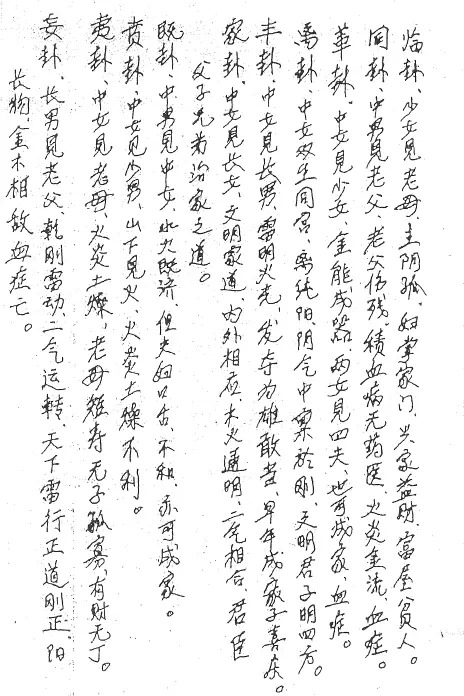 临卦、少女見老母、主阴孤、妇掌家门、兴家益财、富屋貧人。
同卦、中男見老父、老父伤残、積血病无药医、火炎金流、血症。
革卦、中女見少女、金能成器、两女見四夫、也可成家、血症。
离卦、中女双生同宫、离純阳、阴气中禀於刚、文明君子明四方。
丰卦、中女見长男、雷明火光、发夺为雄敢当、早年成家子喜庆。
家卦、中女見长女、文明家道、内外相应、木火通明、二气相合、君臣
父子兄弟治家之道。
既卦、中男見中女、水火既济、但夫妇口舌、不和、亦可成家。
贲卦、中女見少男、山下見火、火炎土燥不利。
夷卦、中女見老母、火炎土燥、老母短寿无子孤寡、有财无丁。
妄卦、长男見老父、乾刚雷动、二气运转、天下雷行正道刚正、阳
长物、金木相敌血症亡。